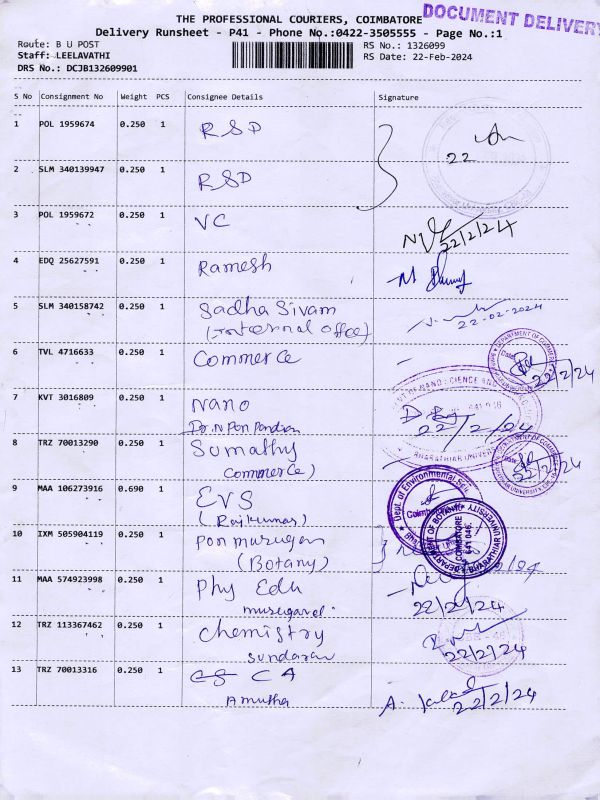 THE PROFESSIONAL COURIERS, COIMBATORE
DOCUMENT DELIVERY
Delivery Runsheet - P41 - Phone No.:0422-3505555 - Page No.:1
Route: B U POST
RS No.: 1326099
Staff: LEELAVATHI
RS Date: 22-Feb-2024
DRS No.: DCJB132609901
S No Consignment No Weight PCS Consignee Details Signature
1 POL 1959674 0.250 1 RSD 22
2 SLM 340139947 0.250 1 RSD
3 POL 1959672 0.250 1 VC 22/2/24
4 EDQ 25627591 0.250 1 Ramesh
5 SLM 340158742 0.250 1 Sadha Sivam 22-02-2024
(Internal office)
6 TVL 4716633 0.250 1 Commerce 22/2/24
7 KVT 3016809 0.250 1 Nano 22/2/24
Dr. N Pon Pandian
8 TRZ 70013290 0.250 1 Sumathy 22/2/24
Commerce)
9 MAA 106273916 0.690 1 EVS
(Rajkumar)
Dept. of Environmental
10 IXM 505904119 0.250 1 Pon murugan
(Botany)
DEPARTMENT OF BOTANY
COIMBATORE
641 046.
BHARATHIAR UNIVERSITY
11 MAA 574923998 0.250 1 Phy Edu
22/2/24
12 TRZ 113367462 0.250 1 Chemistry
sundaran 22/2/24
13 TRZ 70013316 0.250 1 CA
Amutha 22/2/24